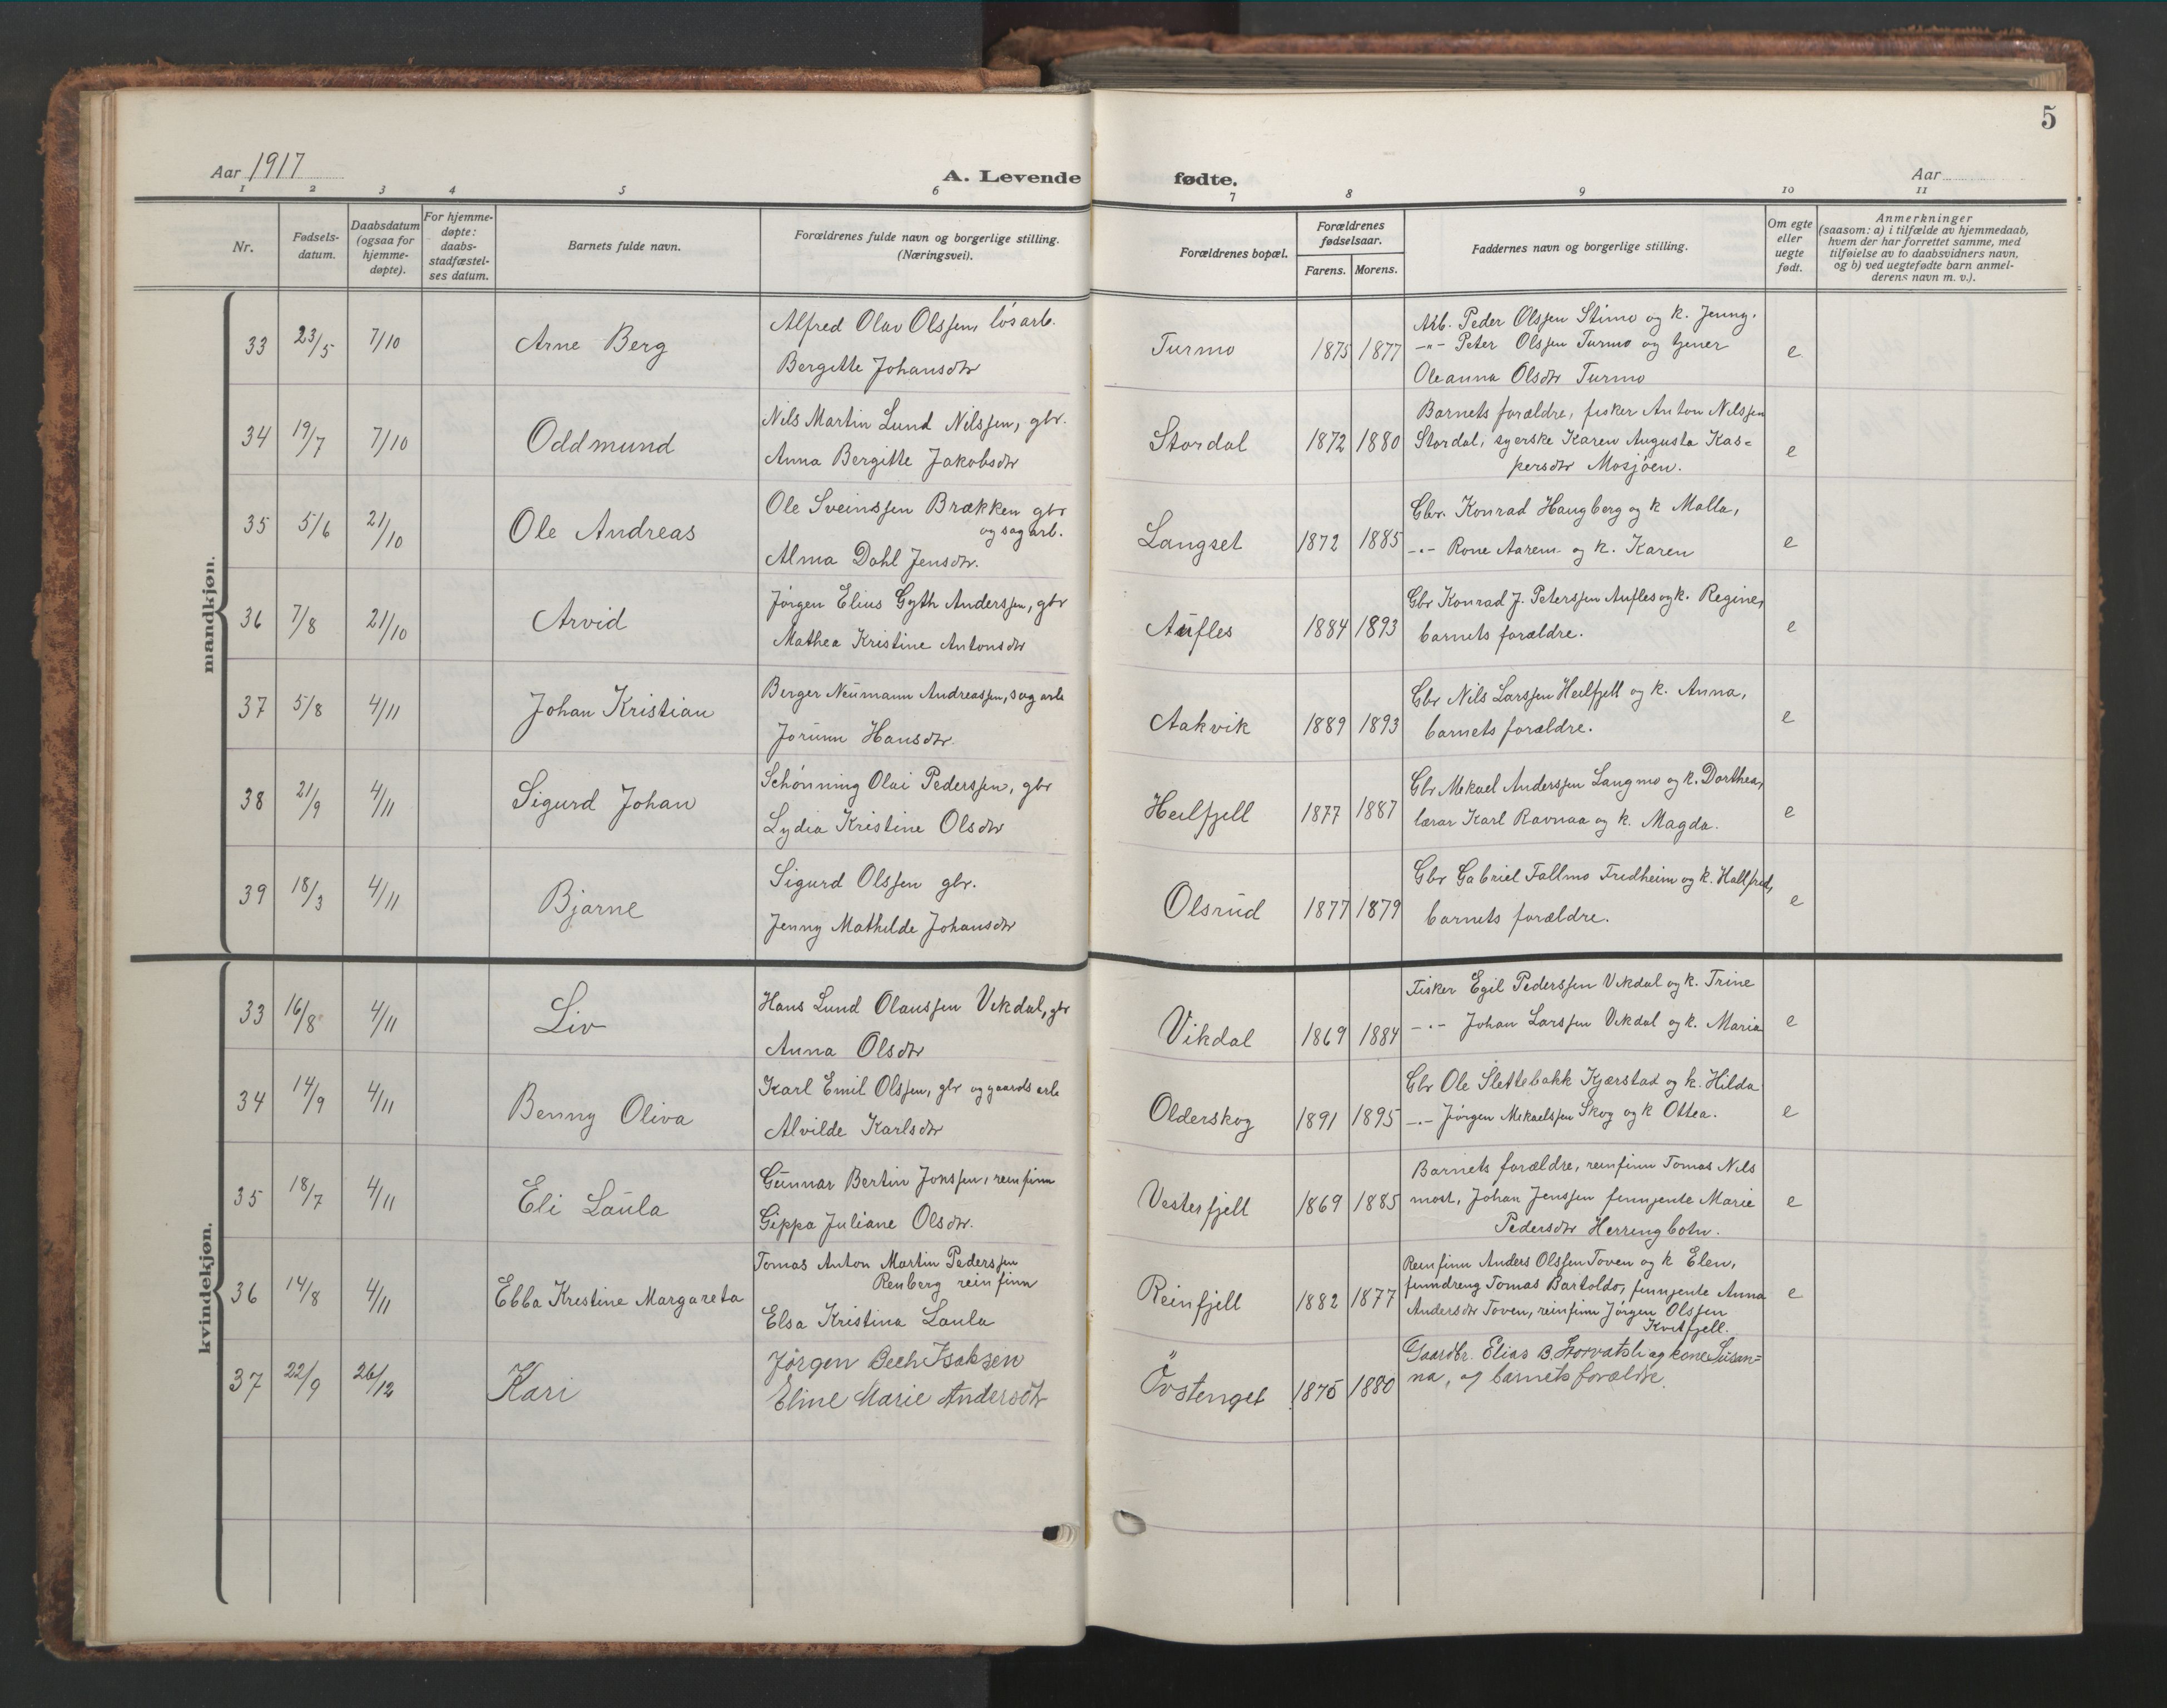 5
Aar 1917
A. Levende fødte.
Aar
1 2 3 4 5 6 7 8 9 10 11
Nr.
Fødsels-
datum.
Daabsdatum
(ogsaa for
hjemme-
døpte).
For hjemme-
døpte:
daabs-
stadfæstel-
ses datum.
Barnets fulde navn.
Forældrenes fulde navn og borgerlige stilling.
(Næringsvei).
Forældrenes bopæl.
Forældrenes
fødselsaar.
Farens. Morens.
Faddernes navn og borgerlige stilling.
Om egte
eller
uegte
født.
Anmerkninger
(saasom: a) i tilfælde av hjemmedaab,
hvem der har forrettet samme, med
tilføielse av to daabsvidners navn,
og b) ved uegtefødte barn anmel-
derens navn m. v.).
mandkjøn.
33 23/5 7/10 Arne Berg
Alfred Olav Olssen, løsarb.
Bergitte Johansdtr
Turmo 1875 1877
Arb. Peder Olssen Stimo og k. Jenny.
-"- Peter Olssen Turmo og tjener
Oleanna Olsdtr Turmo
e
34 19/7 7/10 Oddmund
Nils Martin Lund Nilssen, gbr.
Anna Bergitte Jakobsdtr
Stordal 1872 1880
Barnets forældre, fisker Anton Nilssen
Stordal, syerske Karen Augusta Kas=
persdtr Mosjøen.
e
35 5/6 21/10 Ole Andreas
Ole Sveinssen Brækken gbr
og sagarb.
Alma Dahl Jensdtr.
Langset 1872 1885
Gbr. Konrad Haugberg og k Malla,
-"- Rone Aarem og k. Karen
e
36 7/8 21/10 Arvid
Jørgen Elius Gyth Anderssen, gbr
Mathea Kristine Antonsdtr
Aufles 1884 1893
Gbr Konrad J. Peterssen Aufles og k. Regine,
barnets forældre.
e
37 5/8 4/11 Johan Kristian
Berger Neumann Andreassen, sagarb
Jorunn Hansdtr.
Aakvik 1889 1893
Gbr Nils Larssen Heilfjell og k. Anna,
barnets forældre.
e
38 21/9 4/11 Sigurd Johan
Schønning Olai Pederssen, gbr
Lydia Kristine Olsdtr
Heilfjell 1877 1887
Gbr Mikael Anderssen Langmo og k. Dorthea,
lærar Karl Ravnaa og k. Magda.
e
39 18/3 4/11 Bjarne
Sigurd Olssen gbr.
Jenny Mathilde Johansdtr
Olsrud 1877 1879
Gbr Gabriel Fallmo Fredheim og k. Hallfrid,
barnets forældre.
e
kvindekjøn.
33 16/8 4/11 Liv
Hans Lund Olaussen Vikdal, gbr
Anna Olsdtr
Vikdal 1869 1884
Fisker Egil Pederssen Vikdal og k. Trine
-"- Johan Larssen Vikdal og k. Maria
e
34 14/9 4/11 Benny Oliva
Karl Emil Olssen, gbr og gaardsarb
Alvilde Karlsdtr
Olderskog 1891 1895
Gbr Ole Slettebakk Kjærstad og k. Hilda
-"- Jørgen Mikaelssen Skog og k Ottea.
e
35 18/7 4/11 Eli Laula
Gunnar Bertin Jonssen, reinfinn
Gippa Juliane Olsdtr.
Vesterfjell 1869 1885
Barnets forældre, reinfinn Tomas Nils
most, Johan Jenssen finnjente Marie
Pedersdtr Herringbotn.
e
36 14/8 4/11 Ebba Kristine Margareta
Tomas Anton Martin Pederssen
Renberg reinfinn
Elsa Kristina Laula
Reinfjell 1882 1877
Reinfinn Anders Olssen Toven og k Elen,
finndreng Tomas Bartoldo, finnjente Anna
Andersdtr Toven, reinfinn Jørgen Olssen
Kvitfjell.
e
37 22/9 26/12 Kari
Jørgen Bech Isaksen
Eline Marie Andersdtr
Övstenget 1875 1880
Gaardbr. Elias B. Storvatsli og kone Susan=
na, og barnets forældre.